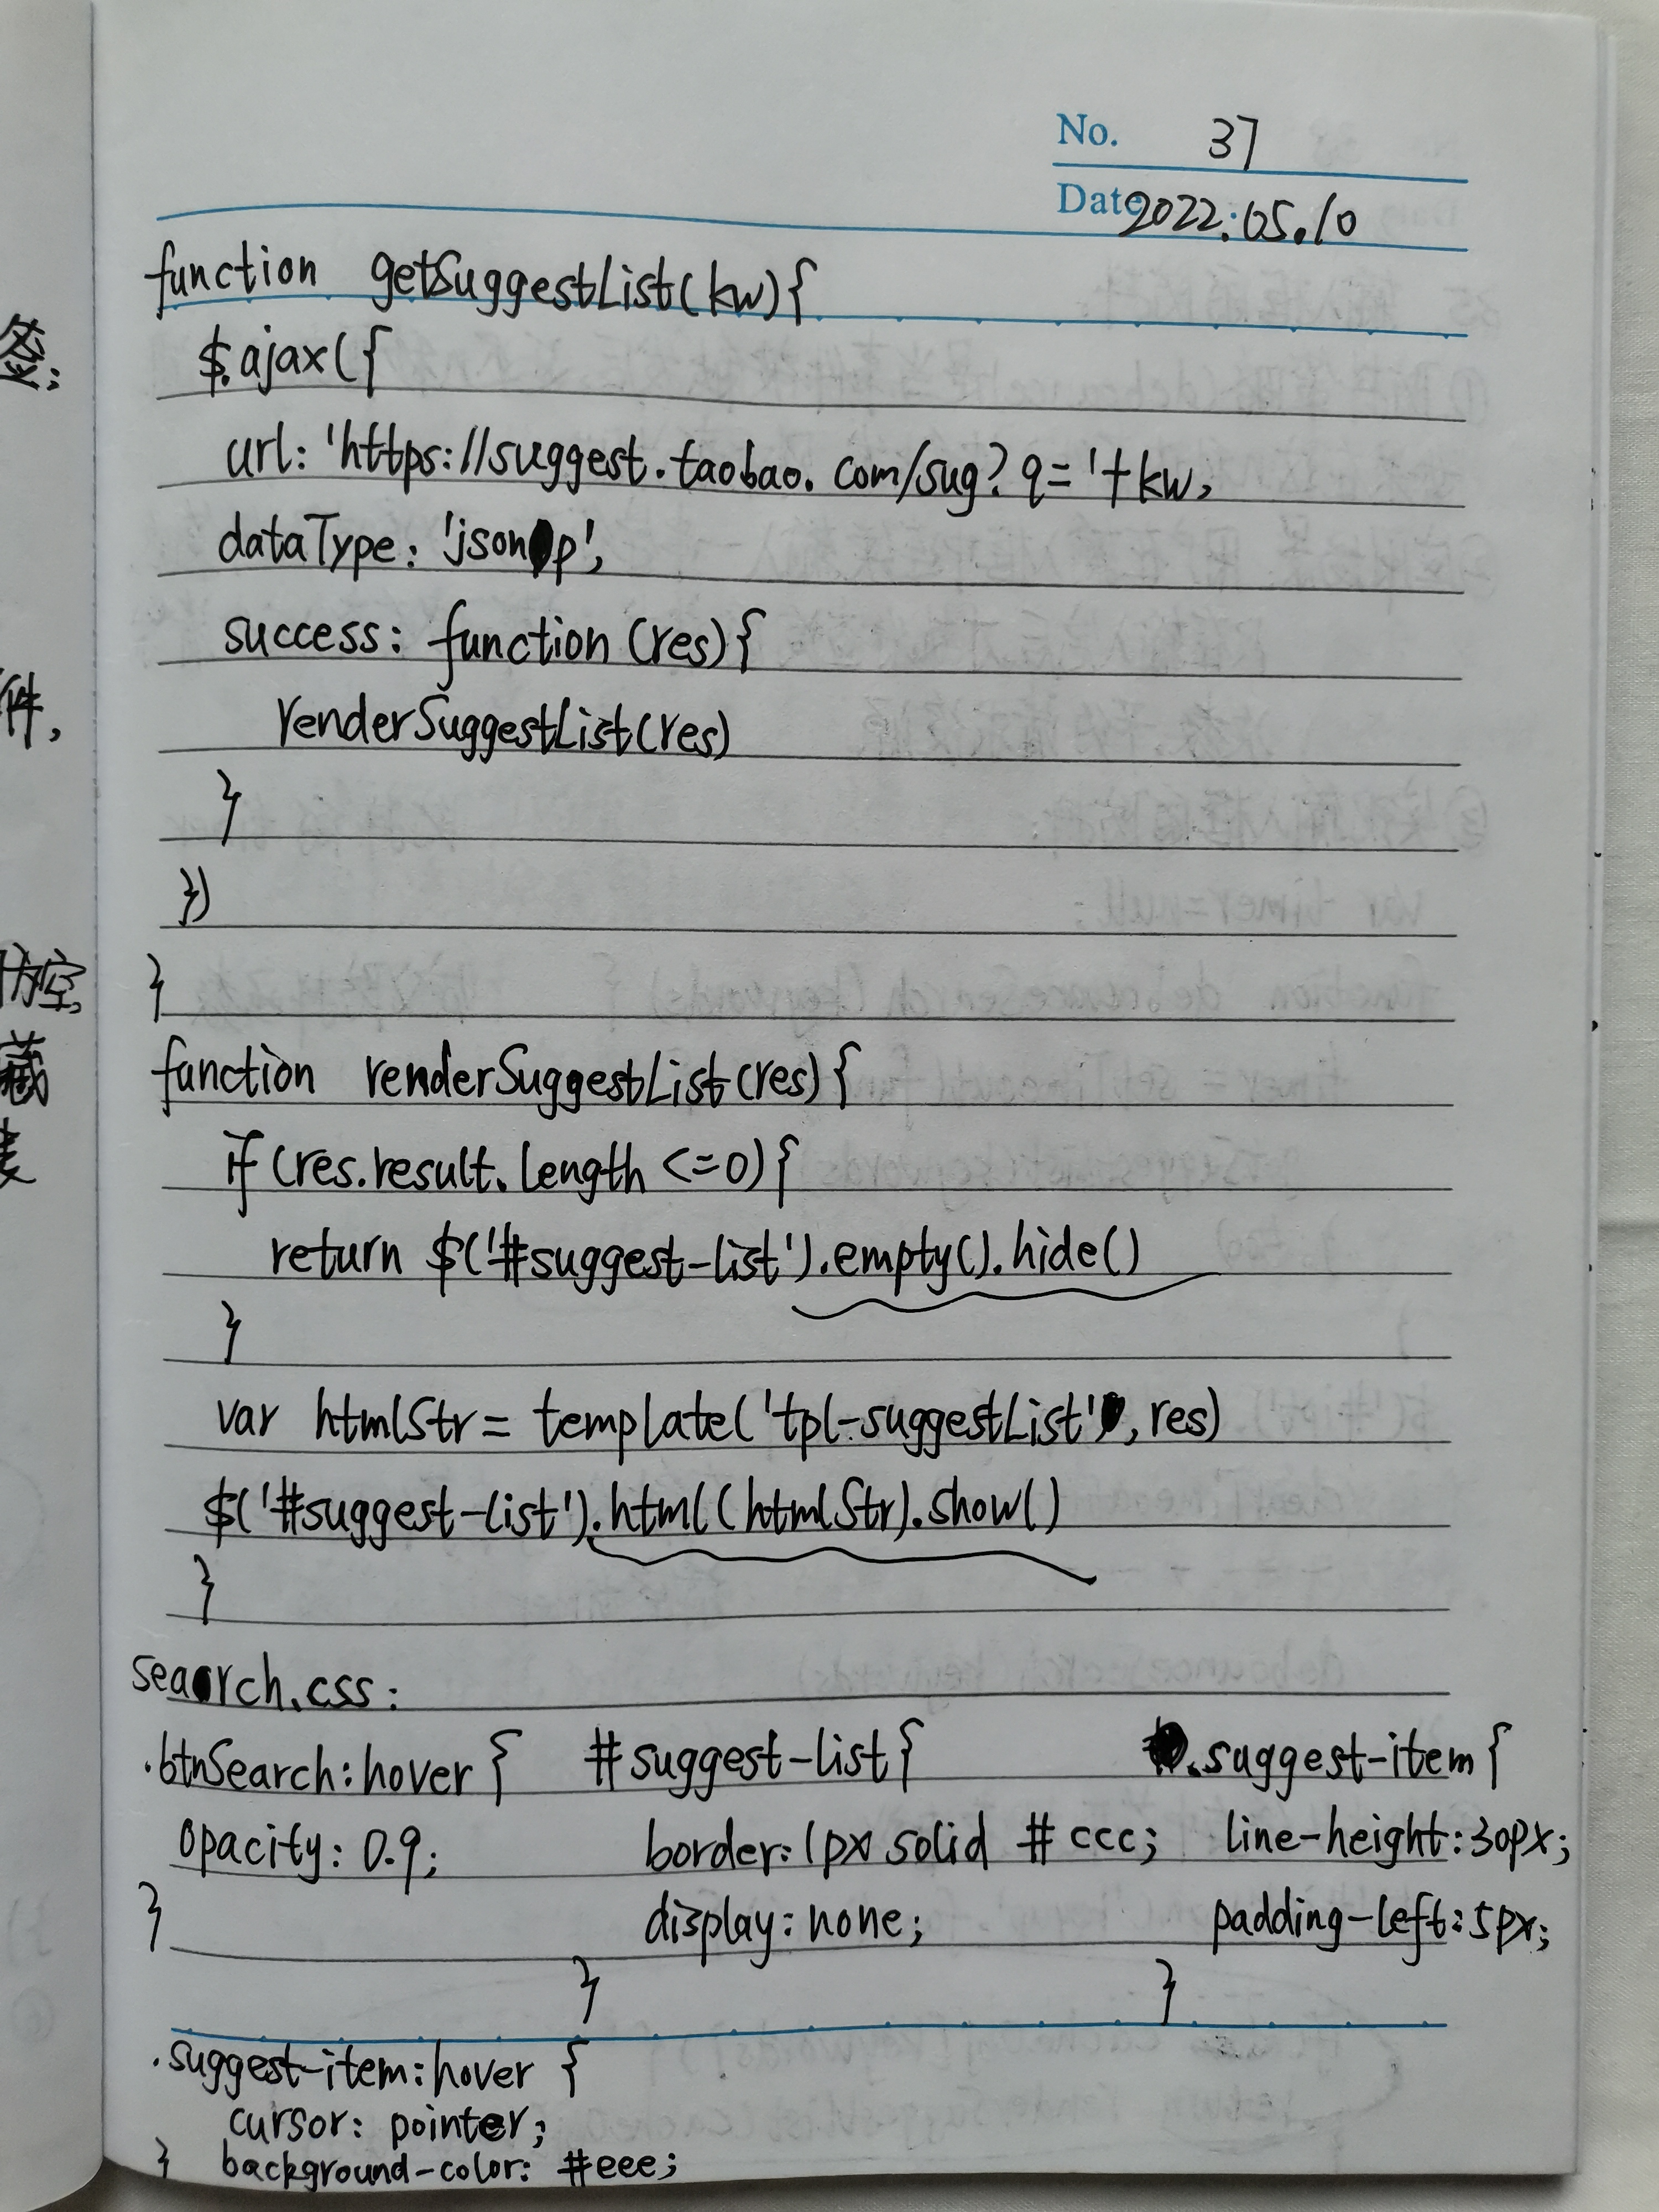 No. 37
Date 2022.05.10
function getSuggestList(kw){
$.ajax({
url: 'https://suggest.taobao.com/sug?q='+kw,
dataType: 'jsonp',
success: function(res){
renderSuggestList(res)
}
})
}
function renderSuggestList(res){
if(res.result.length <=0){
return $('#suggest-list').empty().hide()
}
var htmlStr= template('tpl-suggestList', res)
$('#suggest-list').html(htmlStr).show()
}
search.css:
.btnSearch:hover {
opacity: 0.9;
}
#suggest-list{
border:1px solid #ccc;
display:none;
}
.suggest-item{
line-height:30px;
padding-left:5px;
}
.suggest-item:hover {
cursor: pointer;
} background-color: #eee;
签;
件,
防空,
藏